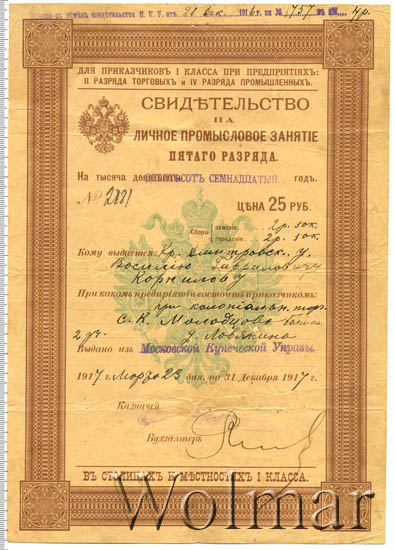 въ обмѣнъ свидѣтельства М. К. У. отъ 20 дек. 1916 г. за № 757 въ 4 р.
ДЛЯ ПРИКАЗЧИКОВЪ I КЛАССА ПРИ ПРЕДПРІЯТІЯХЪ:
II РАЗРЯДА ТОРГОВЫХЪ и IV РАЗРЯДА ПРОМЫШЛЕННЫХЪ.
СВИДѢТЕЛЬСТВО
НА
ЛИЧНОЕ ПРОМЫСЛОВОЕ ЗАНЯТІЕ
ПЯТАГО РАЗРЯДА.
На тысяча девятьсотъ СЕМНАДЦАТЫЙ годъ.
№ 2881
ЦѢНА 25 РУБ.
Сборы земскіе 2 р. 50 к.
городскіе 2 р. 50 к.
Кому выдается: Кр. Дмитровск. у.
Василію Гавриловичу
Корнилову
При какомъ предпріятіи состоитъ приказчикомъ:
при колоніальн. торг.
С. К. Молодцова
2 дъ. д. Ловякина
Выдано изъ Московской Купеческой Управы.
1917 г. Марта 23 дня, по 31 Декабря 1917 г.
Казначей
Бухгалтеръ
ВЪ СТОЛИЦАХЪ И МѢСТНОСТЯХЪ I КЛАССА.
Wolmar